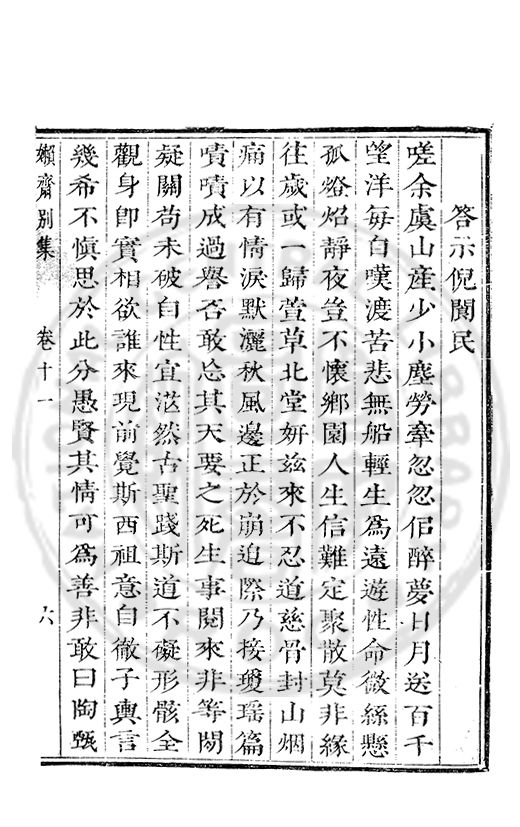 答示倪閬民
嗟余虞山產少小塵勞牽忽忽佀醉夢日月送百千
望洋每自嘆渡苦悲無船輕生爲遠遊性命微絲懸
孤燈炤靜夜豈不懷鄉園人生信難定聚散莫非緣
往歲或一歸萱草北堂妍茲來不忍道慈骨封山烟
痛以有情淚默灑秋風邊正於崩迫際乃接瓊瑶篇
嘖嘖成過譽否敢忘其天要之死生事閱來非等閒
疑關苟未破自性宜茫然古聖踐斯道不礙形骸全
觀身卽實相欲誰來現前覺斯西祖意自徹子輿言
幾希不愼思於此分愚賢其情可爲善非敢曰陶甄
嬾齋別集
卷十一
六